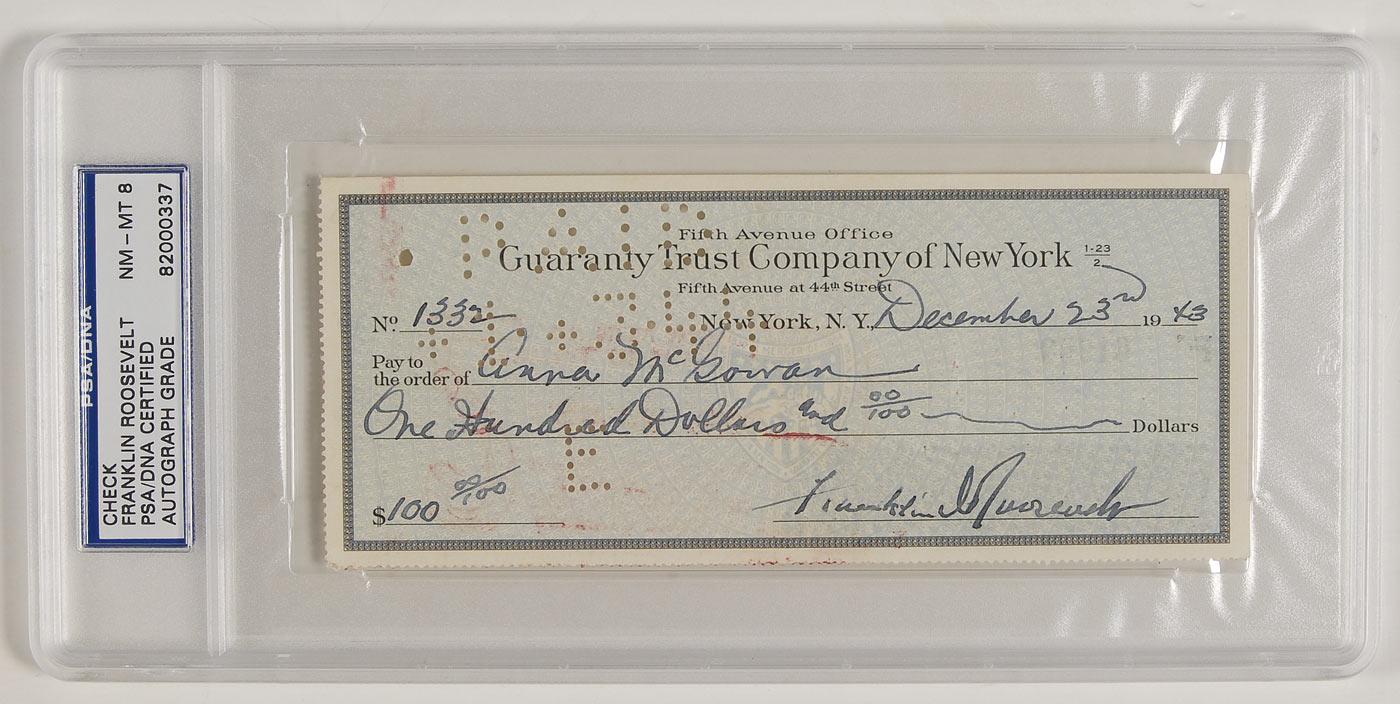 PSA/DNA
CHECK
FRANKLIN ROOSEVELT NM-MT 8
PSA/DNA CERTIFIED
AUTOGRAPH GRADE 82000337
Fifth Avenue Office
Guaranty Trust Company of New York 1-23/2
Fifth Avenue at 44th Street
No. 1332 New York, N.Y., December 23rd 1943
Pay to
the order of Anna McGowan
One Hundred Dollars and 00/100 Dollars
$100 00/100 Franklin D Roosevelt